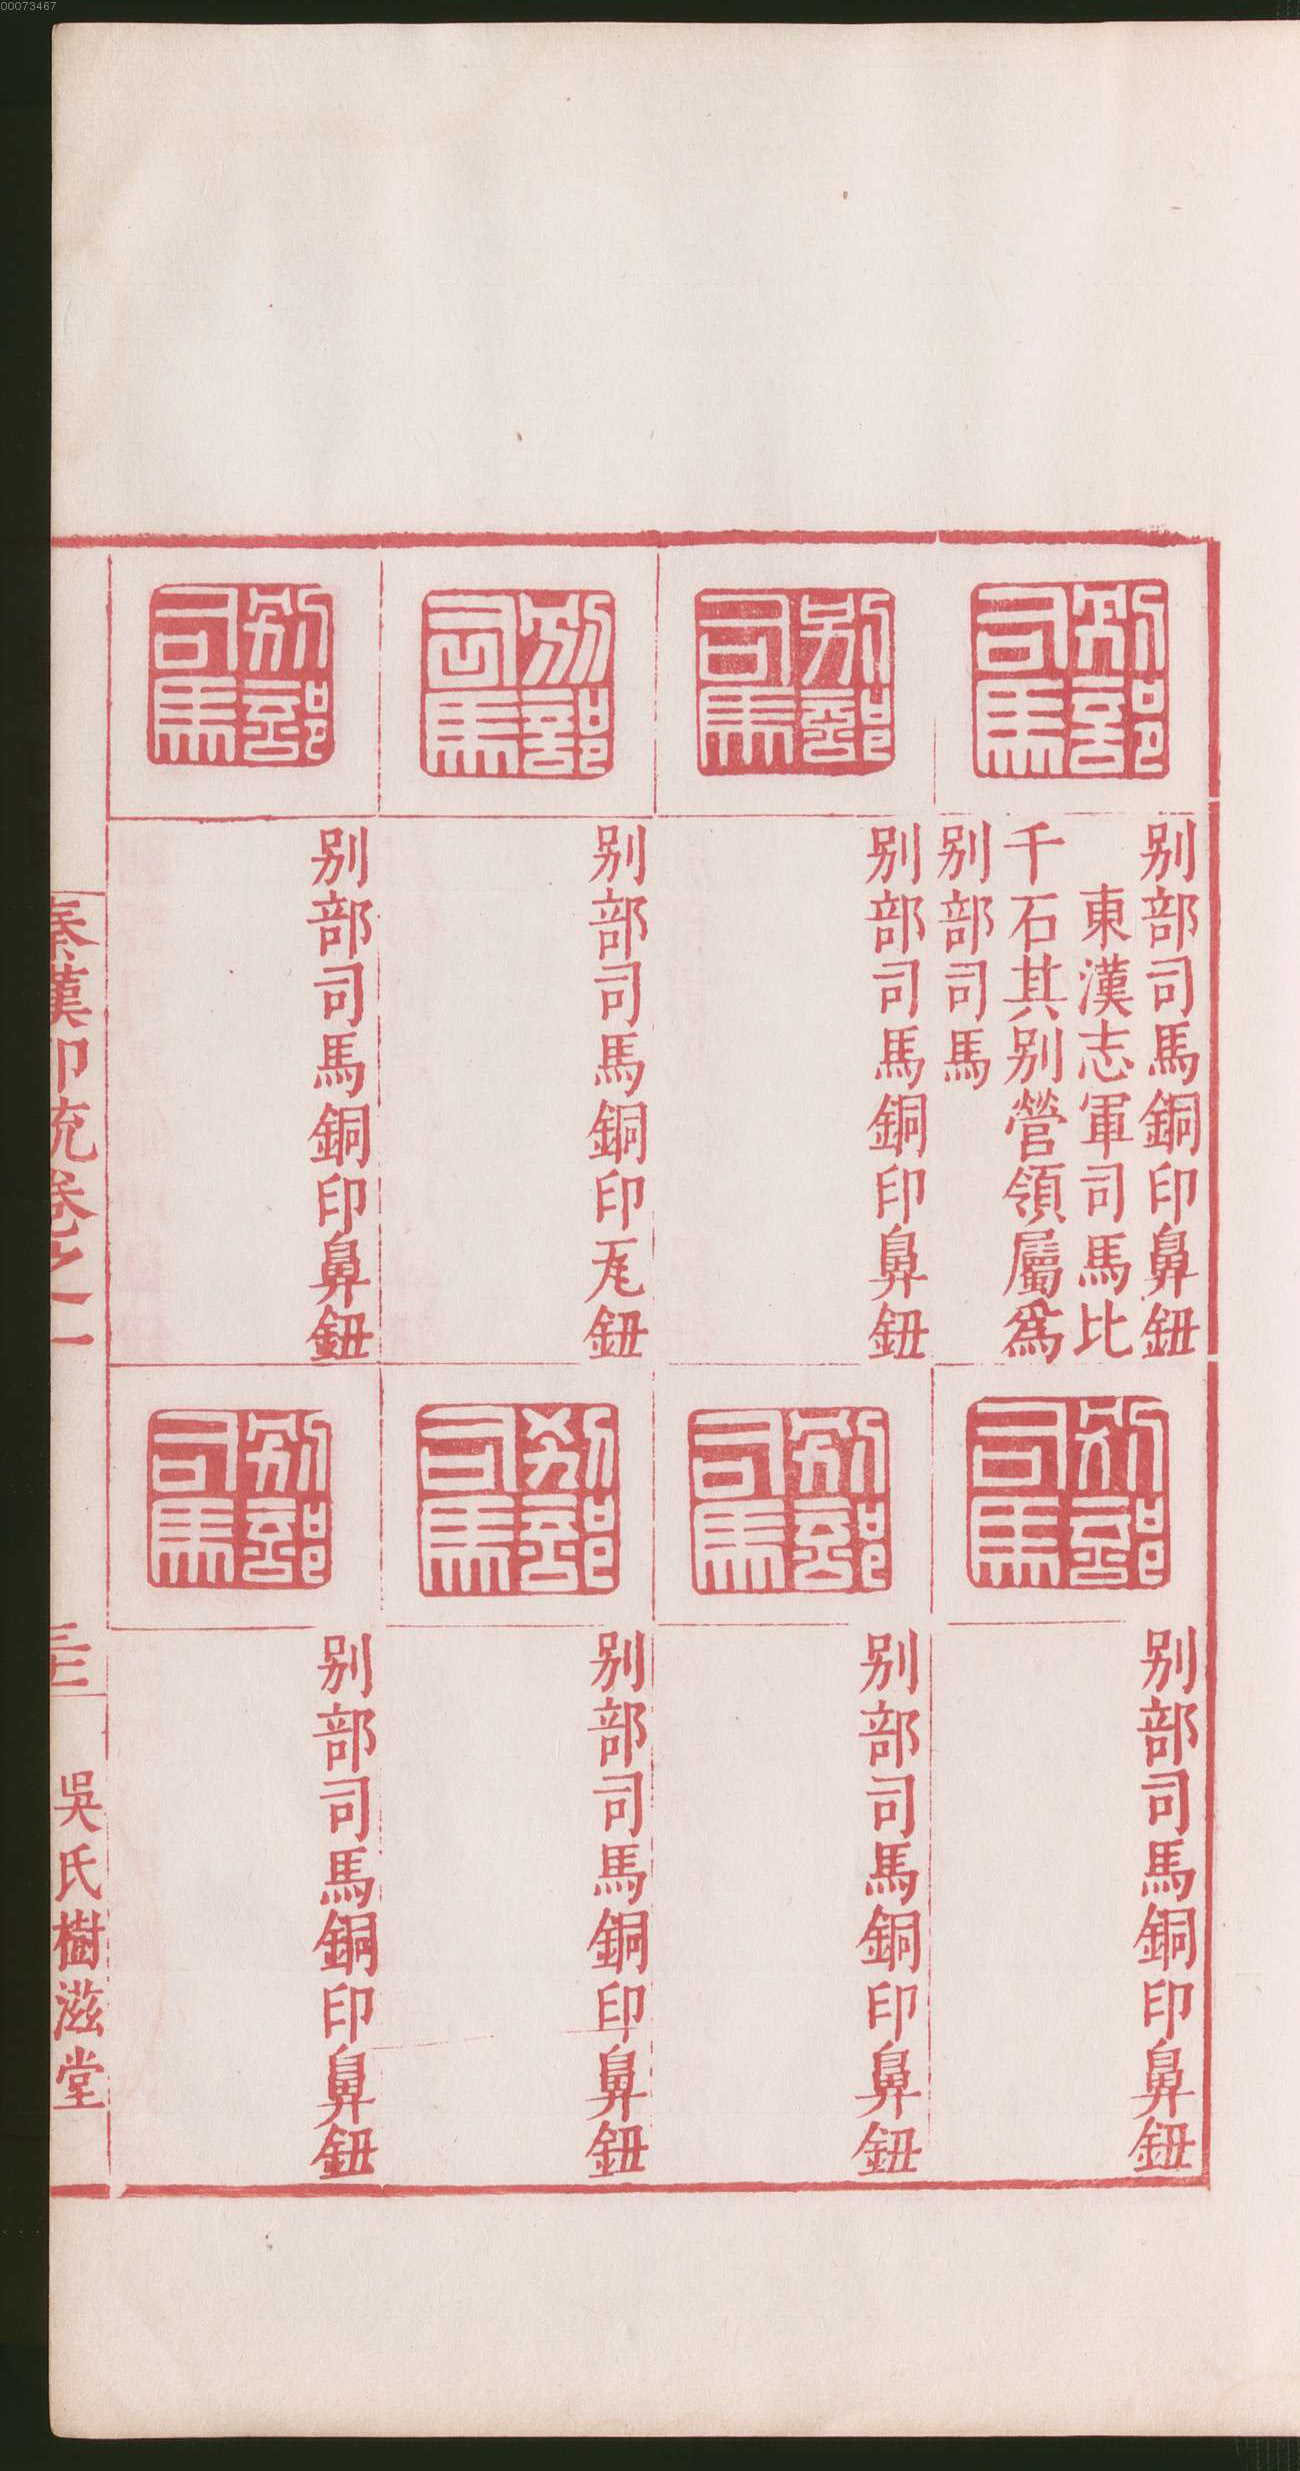 00073467
別部司馬
別部司馬銅印鼻鈕
東漢志軍司馬比
千石其别營領屬爲
别部司馬
別部司馬
别部司馬銅印鼻鈕
別部司馬
别部司馬銅印瓦鈕
別部司馬
别部司馬銅印鼻鈕
別部司馬
别部司馬銅印鼻鈕
別部司馬
别部司馬銅印鼻鈕
別部司馬
别部司馬銅印鼻鈕
別部司馬
别部司馬銅印鼻鈕
秦漢印統卷之一
吳氏樹滋堂